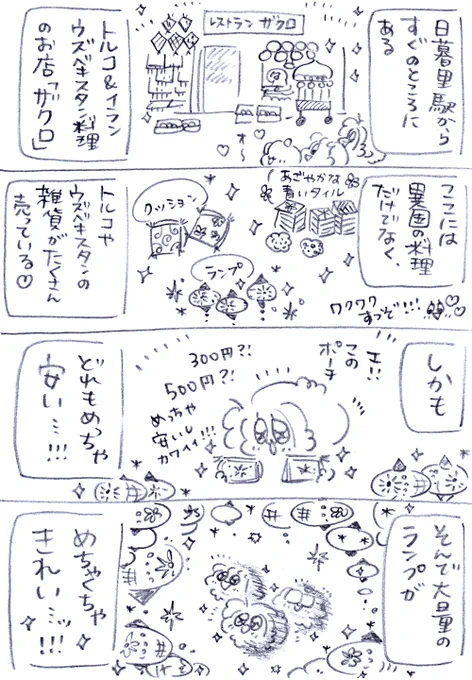 日暮里駅から
すぐのところに
ある
レストラン ザクロ
トルコ&イラン
ウズベキスタン料理
のお店「ザクロ」
オ〜
ここには
異国の料理
だけでなく、
あざやかな
青いタイル
クッション
ランプ
ワクワク
すっぞ!!!
トルコや
ウズベキスタンの
雑貨がたくさん
売っている♡
しかも
エ!!
この
ポーチ
300円?!
500円?!
めっちゃ
安いし
カワイイ!!!
どれもめっちゃ
安い…!!!
そんで大量の
ランプが
めちゃくちゃ
きれい…ッ!!!